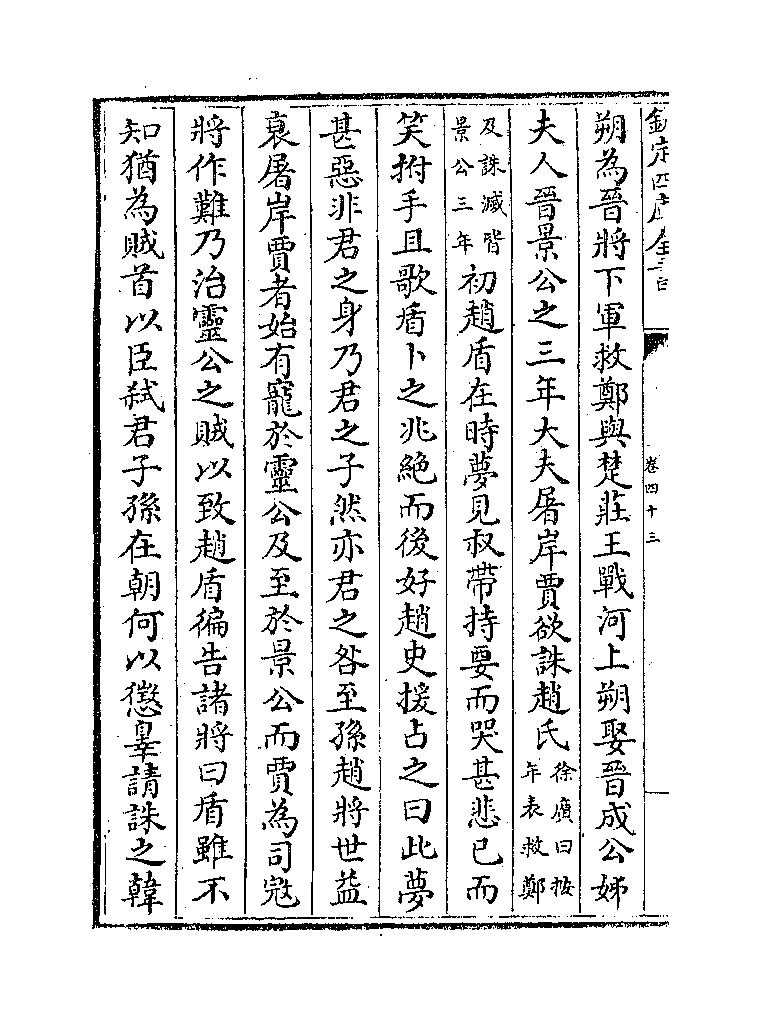 欽定四庫全書
卷四十三
朔為晉將下軍救鄭與楚莊王戰河上朔娶晉成公姊
夫人晉景公之三年大夫屠岸賈欲誅趙氏徐廣曰按年表救鄭
及誅滅皆景公三年初趙盾在時夢見叔帶持要而哭甚悲已而
笑拊手且歌盾卜之兆絕而後好趙史援占之曰此夢
甚惡非君之身乃君之子然亦君之咎至孫趙將世益
衰屠岸賈者始有寵於靈公及至於景公而賈為司寇
將作難乃治靈公之賊以致趙盾徧告諸將曰盾雖不
知猶為賊首以臣弑君子孫在朝何以懲辠請誅之韓